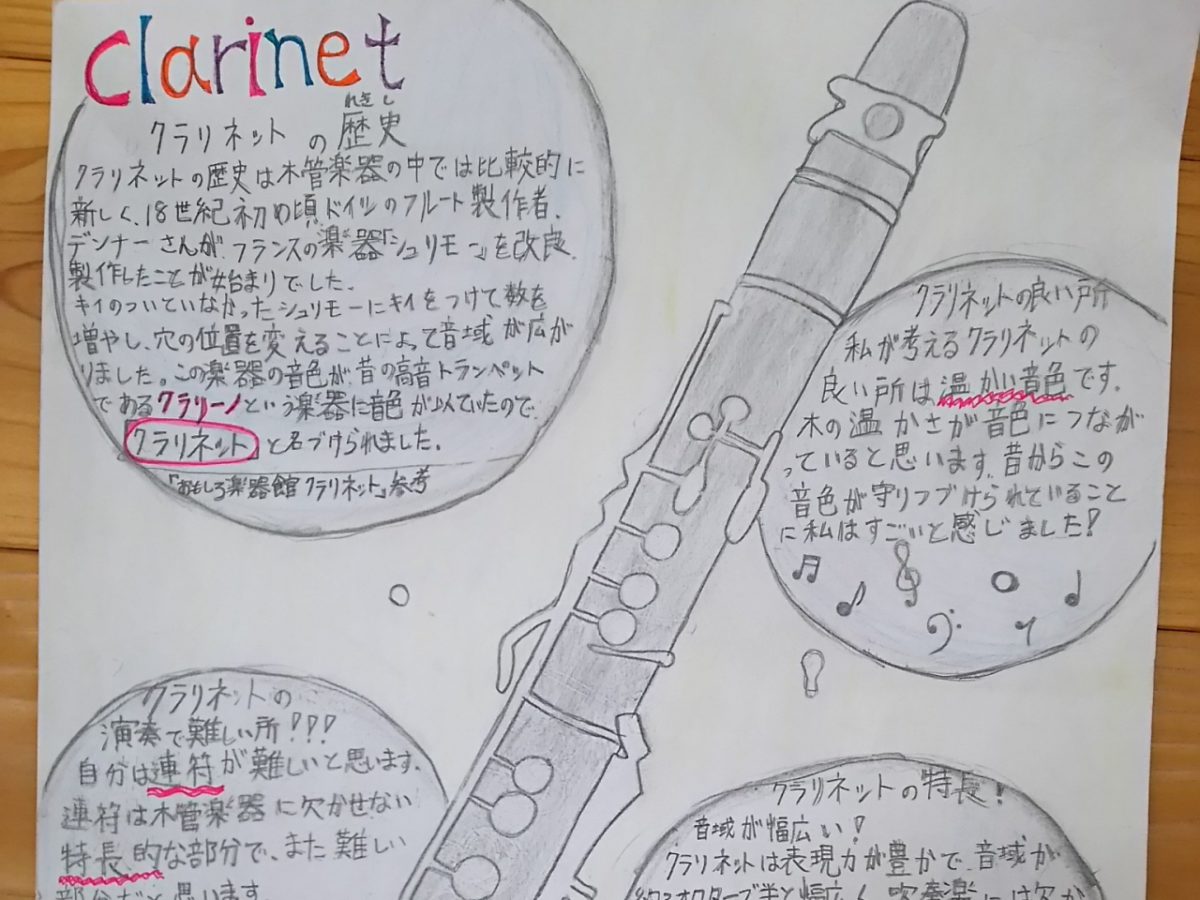 clarinet
れきし
クラリネットの歴史
クラリネットの歴史は木管楽器の中では比較的に
新しく、18世紀初め頃、ドイツのフルート製作者、
デンナーさんが、フランスの楽器「シュリモー」を改良、
製作したことが始まりでした。
キイのついていなかったシュリモーにキイをつけて数を
増やし、穴の位置を変えることによって音域が広が
りました。この楽器の音色が、昔の高音トランペット
であるクラリーノという楽器に音色が似ていたので、
クラリネットと名づけられました。
「おもしろ楽器館 クラリネット」参考
クラリネットの良い所
私が考えるクラリネットの
良い所は温かい音色です。
木の温かさが音色につなが
っていると思います。昔からこの
音色が守りつづけられていること
に私はすごいと感じました!
クラリネットの
演奏で難しい所!!!
自分は連符が難しいと思います。
連符は木管楽器に欠かせない
特長的な部分で、また難しい
部分だと思います。
クラリネットの特長!
音域が幅広い!
クラリネットは表現力が豊かで、音域が
約3オクターブ半と幅広く、吹奏楽には欠か